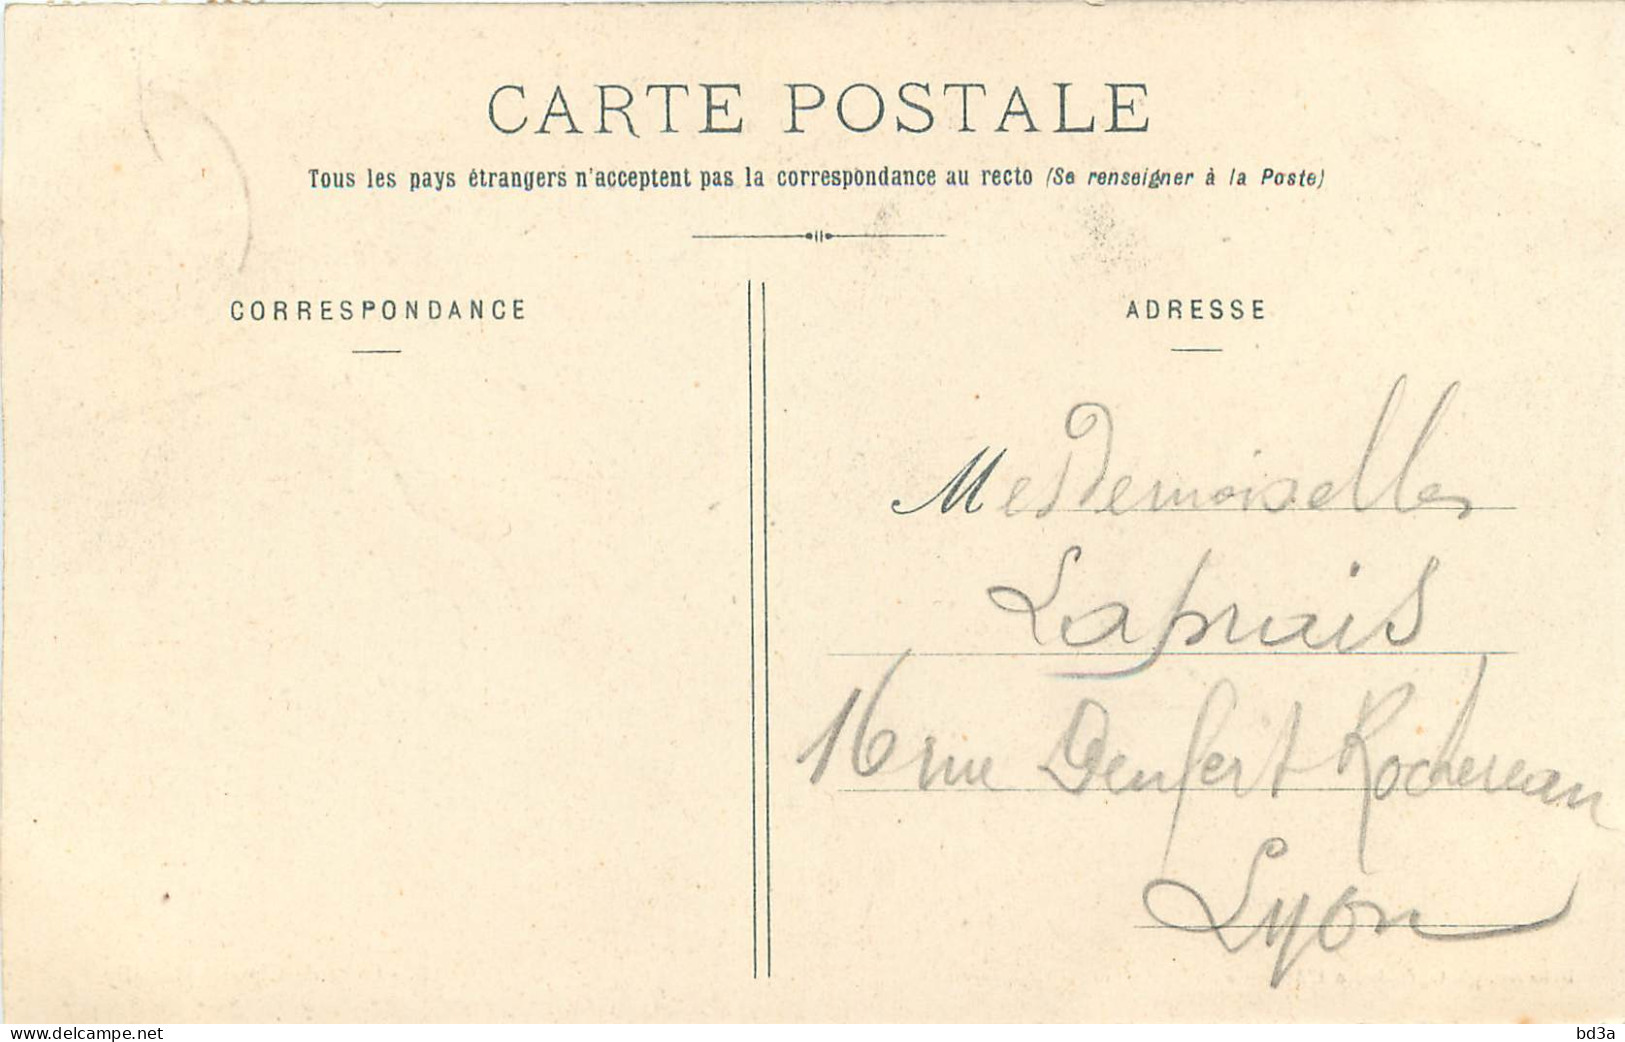 CARTE POSTALE
Tous les pays étrangers n'acceptent pas la correspondance au recto (Se renseigner à la Poste)
CORRESPONDANCE
ADRESSE
MesDemoiselles
Laprais
16 rue Denfert Rochereau
Lyon
delcampe.net
bd3a